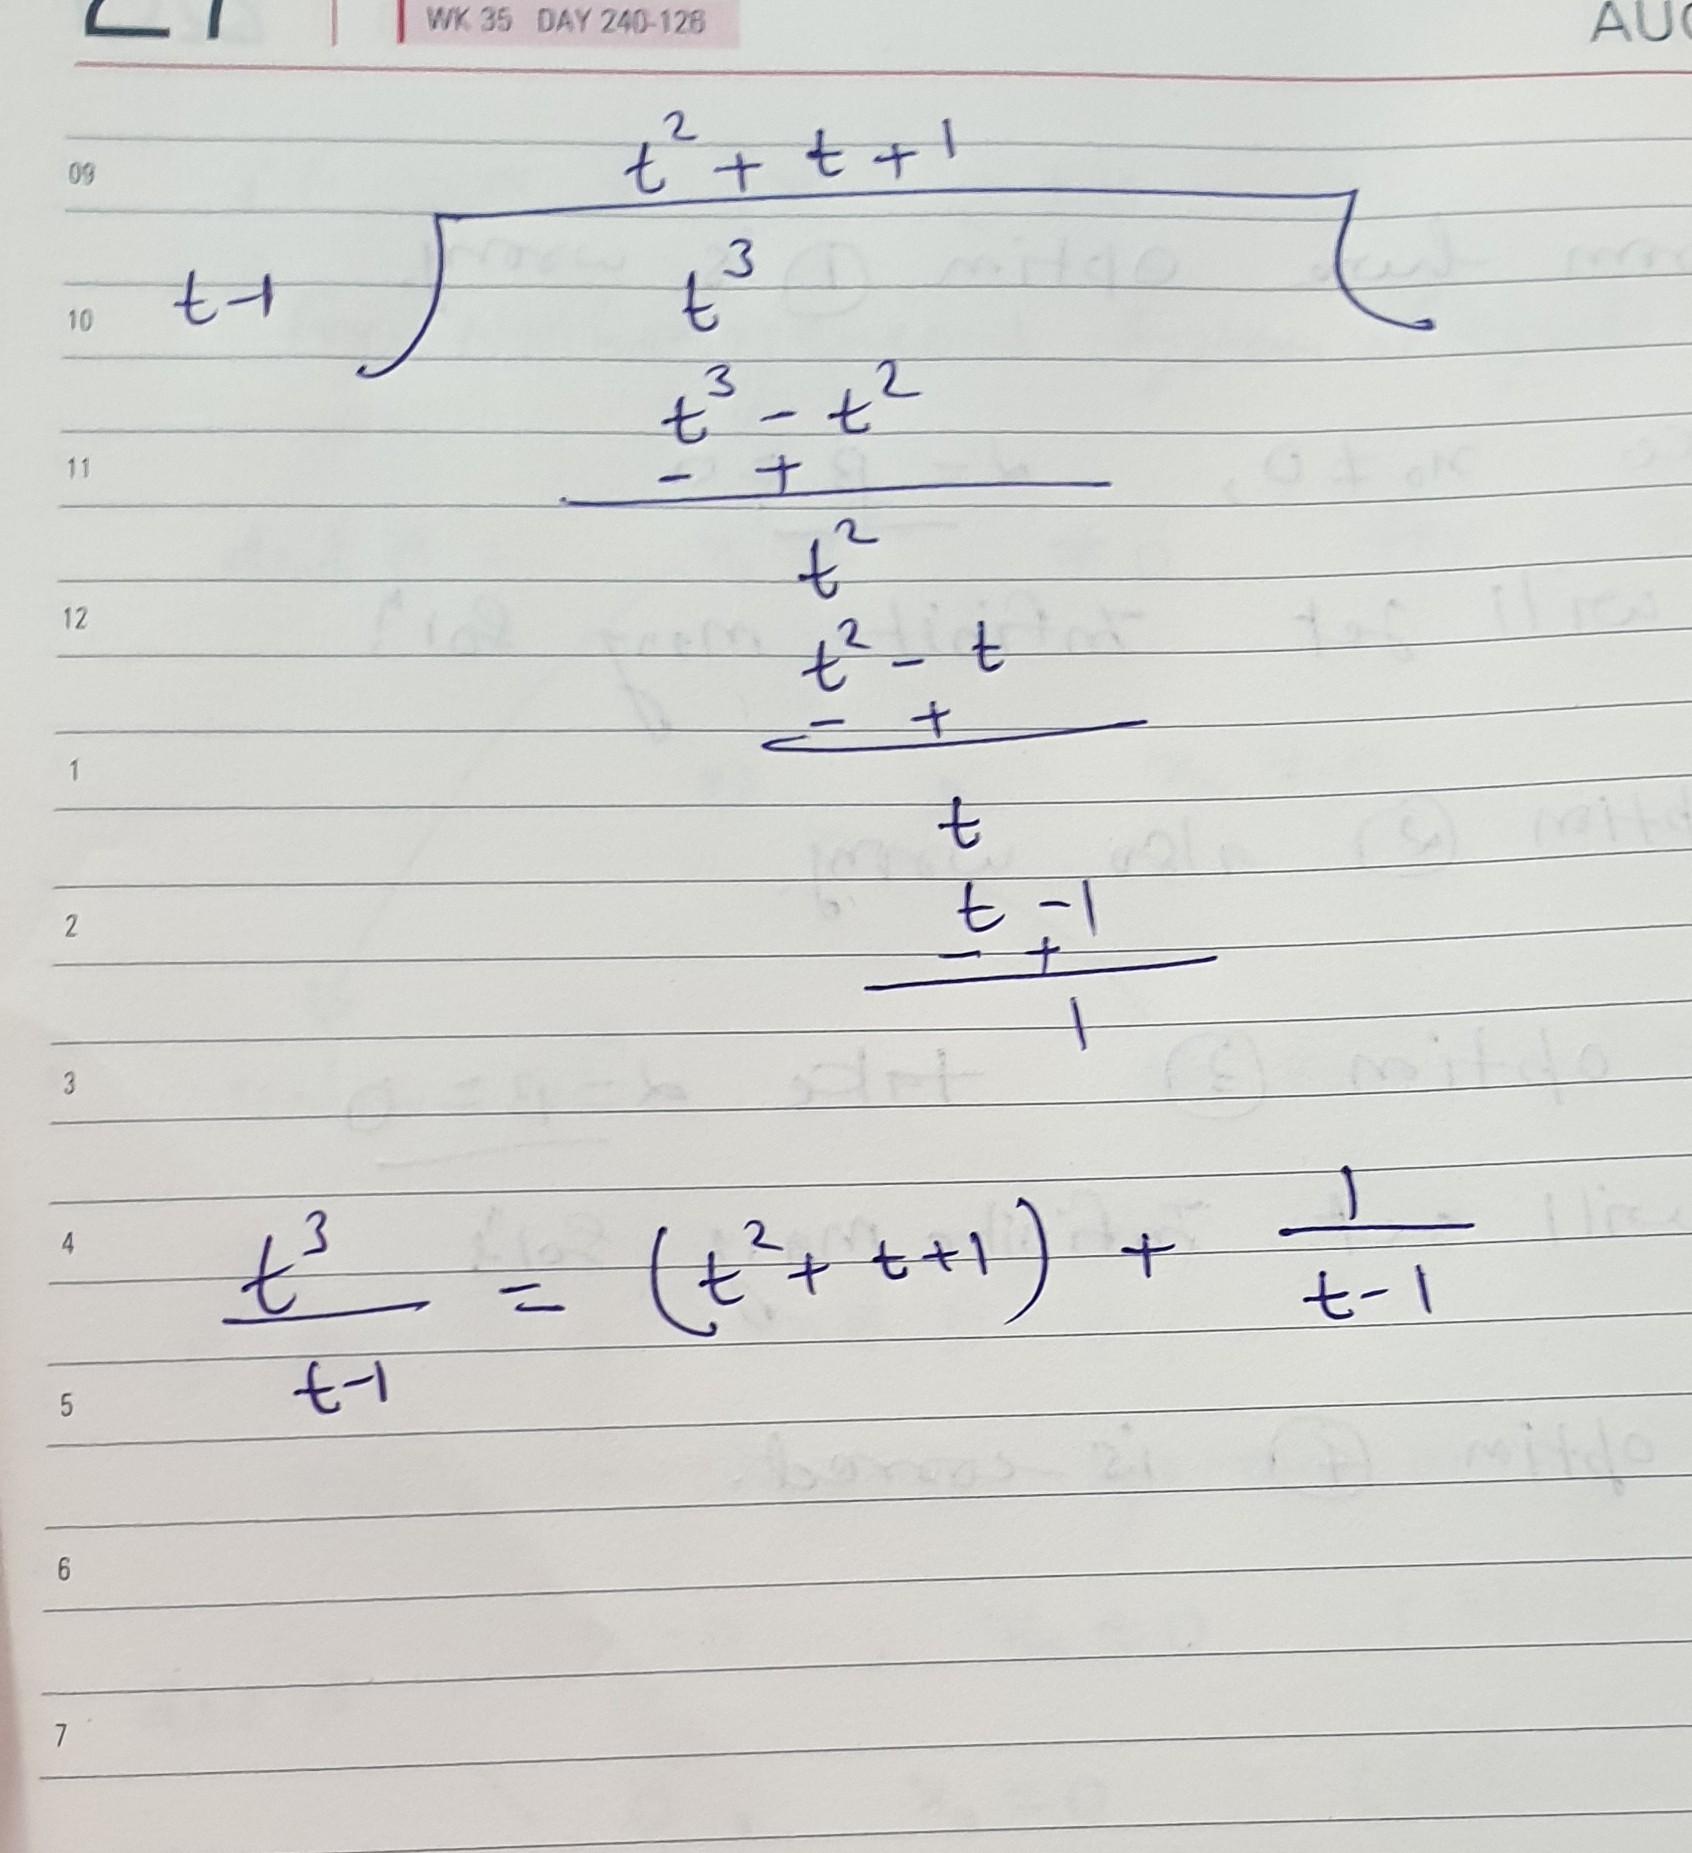 WK 35 DAY 240-126
09
t² + t + 1
10 t-1 t³
t³ - t²
11 - +
t²
12
t² - t
- +
1
t
2 t - 1
- +
1
3
4 t³/t-1 = (t² + t + 1) + 1/t-1
5
6
7